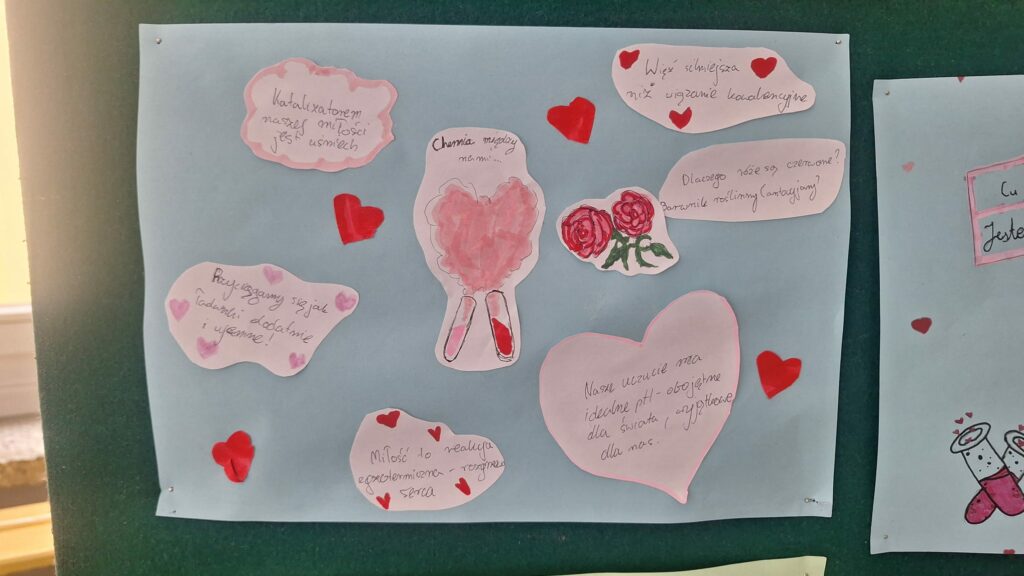 Katalizatorem
naszej miłości
jest uśmiech
Chemia między
nami...
Więź silniejsza
niż wiązanie kowalencyjne
Dlaczego róże są czerwone?
Barwnik roślinny (antocyjany)?
Przyciągamy się jak
ładunki dodatnie
i ujemne!
Nasze uczucie ma
idealne pH - obojętne
dla świata, wyjątkowe
dla nas.
Miłość to reakcja
egzotermiczna - rozgrzewa
serca
Cu
Jeste